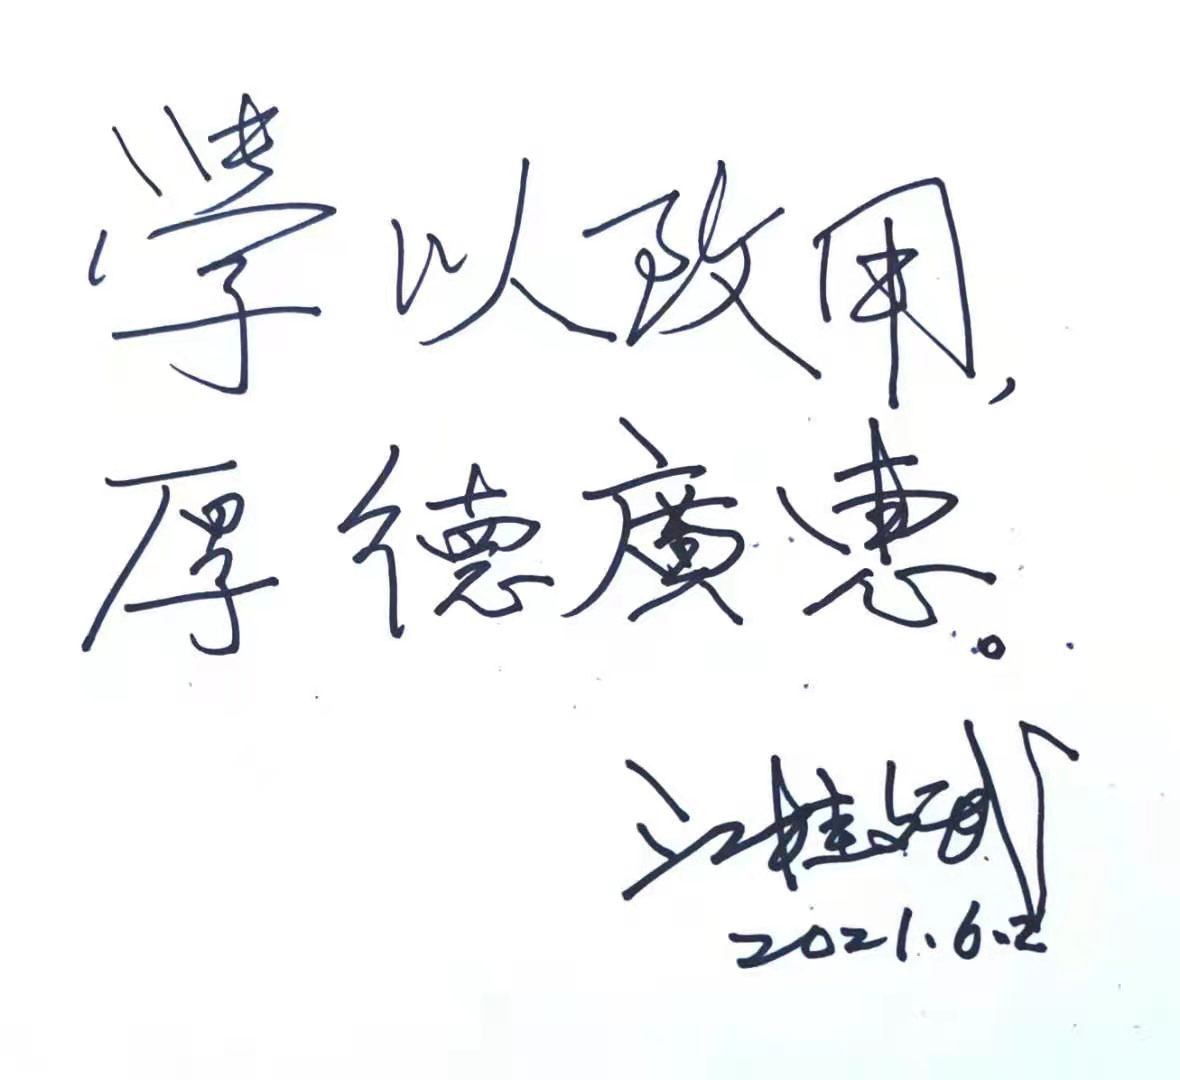 学以致用,
厚德廣惠。
江桂斌
2021.6.2